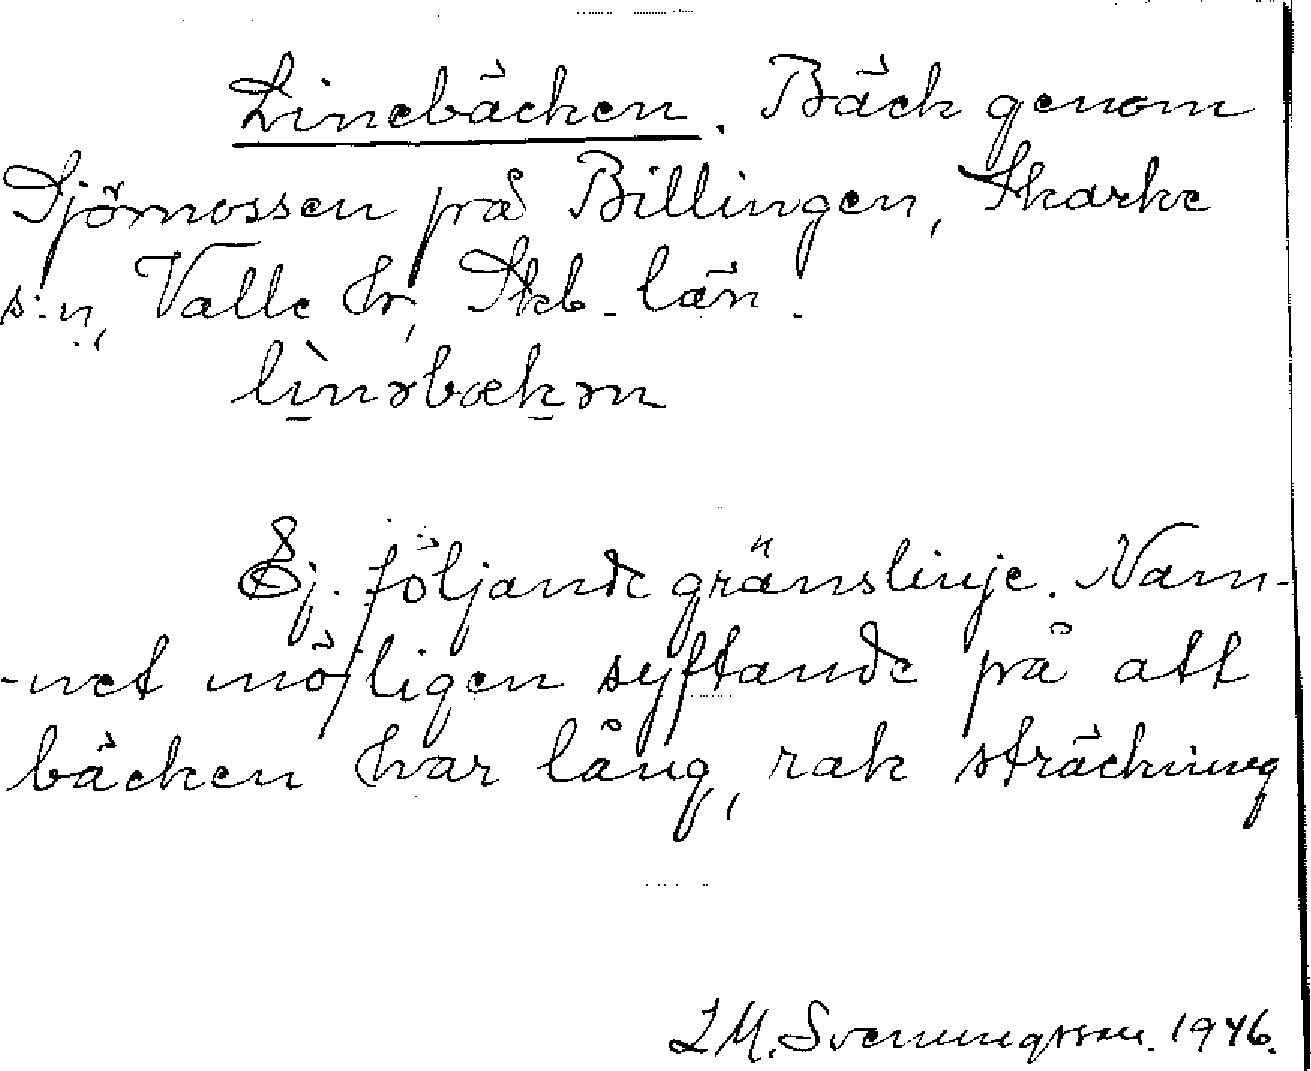 Linebäcken. Bäck genom
Sjömossen på Billingen, Skarke
s:n, Valle hr, Skb. län.
lìnəbækən
Ej följande gränslinje. Nam-
-net möjligen syftande på att
bäcken har lång, rak sträckning
M. Svenungsson. 1946.